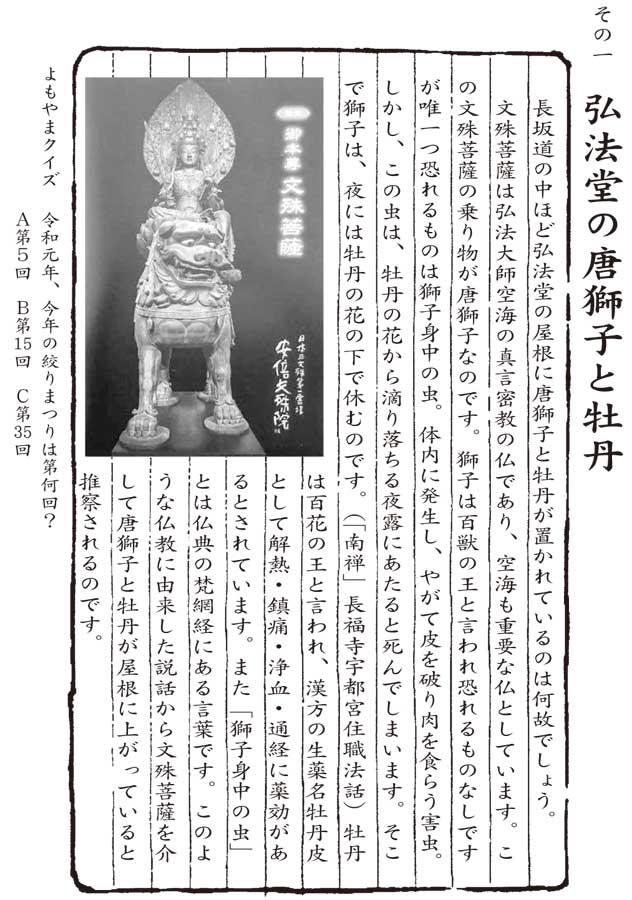 その一
弘法堂の唐獅子と牡丹
長坂道の中ほど弘法堂の屋根に唐獅子と牡丹が置かれているのは何故でしょう。
文殊菩薩は弘法大師空海の真言密教の仏であり、空海も重要な仏としています。こ
の文殊菩薩の乗り物が唐獅子なのです。獅子は百獣の王と言われ恐れるものなしです
が唯一つ恐れるものは獅子身中の虫。体内に発生し、やがて皮を破り肉を食らう害虫。
しかし、この虫は、牡丹の花から滴り落ちる夜露にあたると死んでしまいます。そこ
で獅子は、夜には牡丹の花の下で休むのです。（「南禅」長福寺宇都宮住職法話）牡丹
は百花の王と言われ、漢方の生薬名牡丹皮
として解熱・鎮痛・浄血・通経に薬効があ
るとされています。また「獅子身中の虫」
とは仏典の梵網経にある言葉です。このよ
うな仏教に由来した説話から文殊菩薩を介
して唐獅子と牡丹が屋根に上がっていると
推察されるのです。
御本尊 文殊菩薩
日本三文殊第一霊場
安倍文殊院
よもやまクイズ 令和元年、今年の絞りまつりは第何回？
A第5回 B第15回 C第35回